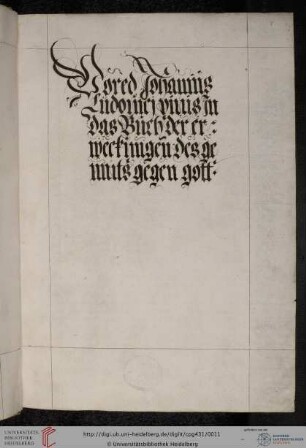 Vored Johannis
Ludouici viuis in
das Buch der er⸗
weckungen des ge
muts gegen gott.
UNIVERSITÄTS-
BIBLIOTHEK
HEIDELBERG
http://digi.ub.uni-heidelberg.de/diglit/cpg431/0011
© Universitätsbibliothek Heidelberg